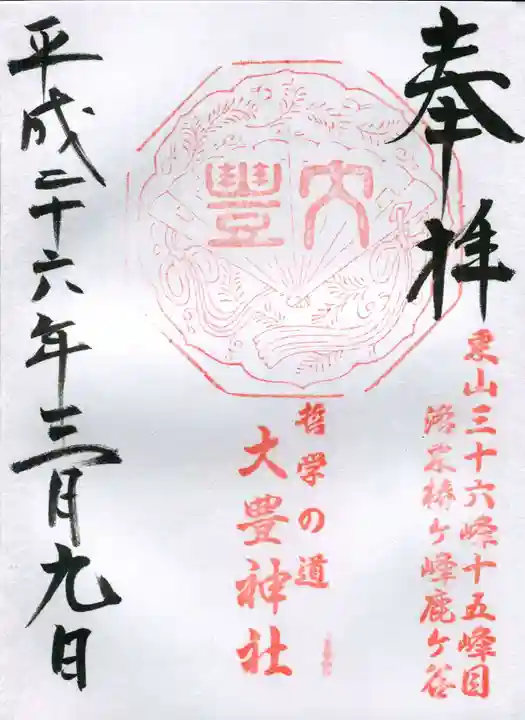 奉拝
東山三十六峰十五峰目
洛東椿ケ峰鹿ケ谷
大豊
哲学の道
大豊神社
平成二十六年三月九日